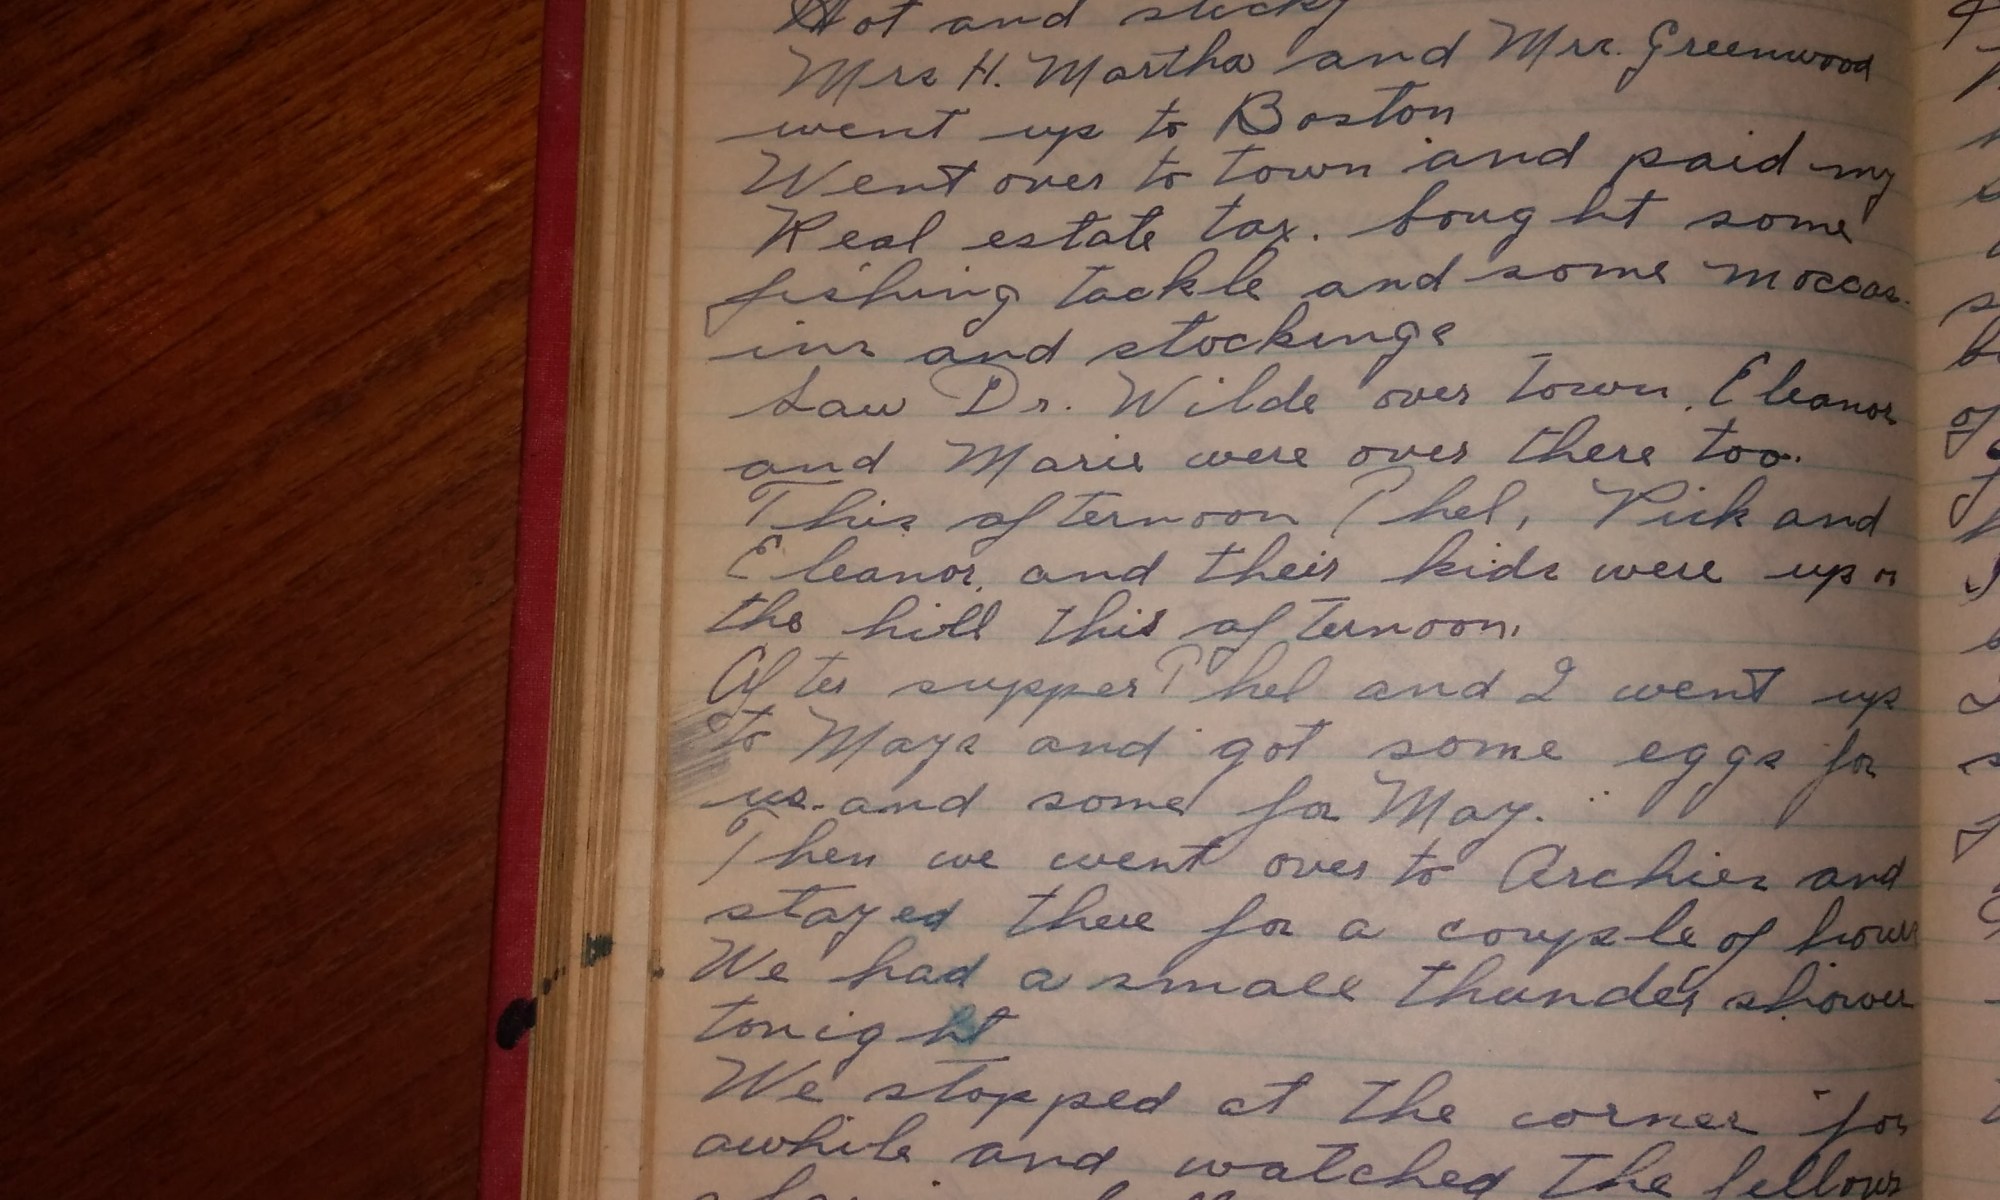 Hot and sticky
Mrs H. Martha and Mrs. Greenwood
went up to Boston
Went over to town and paid my
Real estate tax. bought some
fishing tackle and some moccas-
ins and stockings
Saw Dr. Wilde over town. Eleanor
and Marie were over there too.
This afternoon Phel, Pick and
Eleanor, and their kids were up on
the hill this afternoon.
After supper Phel and I went up
to Mays and got some eggs for
us. and some for May.
Then we went over to Archies and
stayed there for a couple of hours
We had a small thunder shower
tonight
We stopped at the corner for
awhile and watched the fellows